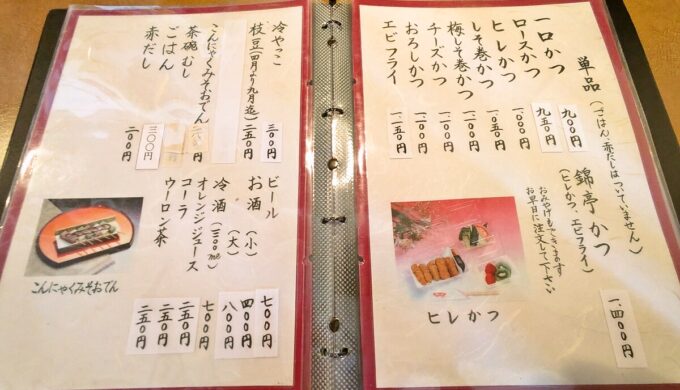 単品(ごはん、赤だしはついていません)
一口かつ 九〇〇円
ロースかつ 九五〇円
ヒレかつ 一、〇〇〇円
しそ巻かつ 一、〇五〇円
梅しそ巻かつ
チーズかつ
おろしかつ
エビフライ
錦亭かつ 一、四〇〇円
(ヒレかつ、エビフライ)
おみやげもできますので
お早目に注文して下さい
ヒレかつ
冷やっこ 三〇〇円
枝豆(四月より九月迄) 二五〇円
こんにゃくみそおでん
茶碗むし
ごはん 三〇〇円
赤だし 二〇〇円
ビール 七〇〇円
お酒(小) 四〇〇円
(大) 八〇〇円
冷酒(三〇〇ml) 七〇〇円
オレンジジュース 二五〇円
コーラ 二五〇円
ウーロン茶 二五〇円
こんにゃくみそおでん